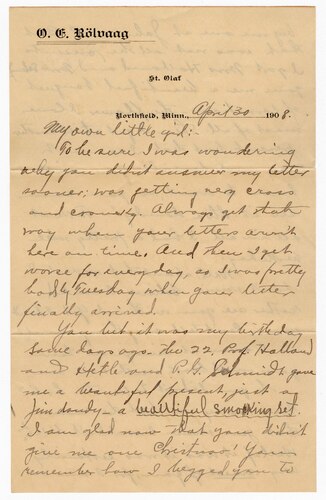 O. E. Rölvaag
St. Olaf
Northfield, Minn., April 30 1908.
My own little girl:-
To be sure I was wondering
why you didn't answer my letter
sooner; was getting very cross
and Always get that
way when your letters arn't
here on time. And then I get
worse for every day, as I was pretty
badly Tuesday when your letter
finally arrived.
You bet it was my birthday
some days ago. The 22, Prof. Holland
and and P. G. Schmidt gave
me a beautiful present, just a
jim dandy - a beautiful smoking set.
I am glad now that you didn't
give me one Christmas! You
remember how I begged you to